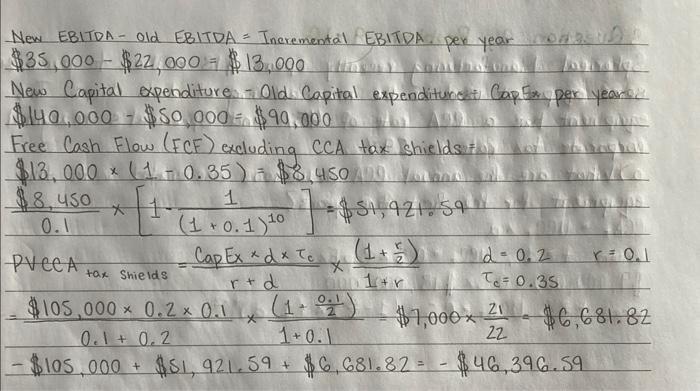 New EBITDA - Old EBITDA = Incremental EBITDA per year
$35,000 - $22,000 = $13,000
New Capital expenditure - Old Capital expenditure = CapEx per year
$140,000 - $50,000 = $90,000
Free Cash Flow (FCF) excluding CCA tax shields =
$13,000 × (1 - 0.35) = $8,450
$8,450 / 0.1 × [1 - 1 / (1 + 0.1)^10] = $51,921.59
PVCCA tax shields = CapEx × d × Tc / r + d × (1 + r/2) / 1 + r d = 0.2 r = 0.1
Tc = 0.35
= $105,000 × 0.2 × 0.1 / 0.1 + 0.2 × (1 + 0.1/2) / 1 + 0.1 = $7,000 × 21/22 = $6,681.82
- $105,000 + $51,921.59 + $6,681.82 = - $46,396.59